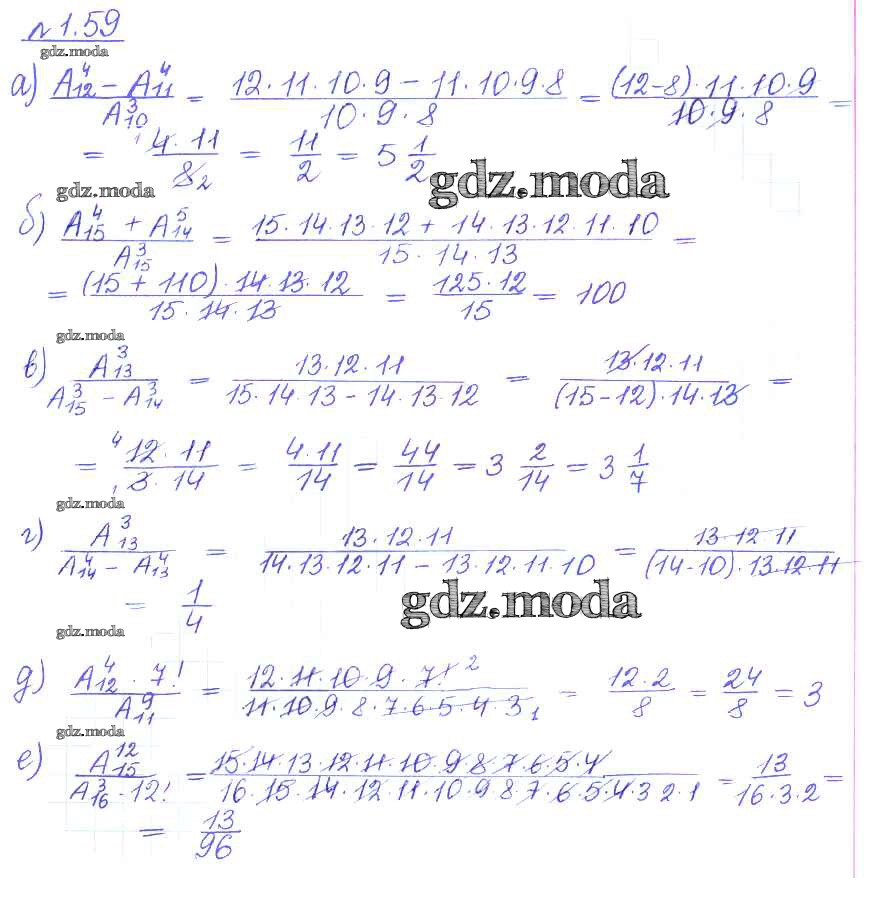 №1.59
gdz.moda
а) (A₁₂⁴ − A₁₁⁴)/A₁₀³ = (12·11·10·9 − 11·10·9·8)/(10·9·8) = ((12−8)·11·10·9)/(10·9·8) =
= (4·11)/8 = 11/2 = 5 1/2
gdz.moda
gdz.moda
б) (A₁₅⁴ + A₁₄⁵)/A₁₅³ = (15·14·13·12 + 14·13·12·11·10)/(15·14·13) =
= ((15 + 110)·14·13·12)/(15·14·13) = (125·12)/15 = 100
gdz.moda
в) A₁₃³/(A₁₅³ − A₁₄³) = (13·12·11)/(15·14·13 − 14·13·12) = (13·12·11)/((15−12)·14·13) =
= (12·11)/(3·14) = (4·11)/14 = 44/14 = 3 2/14 = 3 1/7
gdz.moda
г) A₁₃³/(A₁₄⁴ − A₁₃⁴) = (13·12·11)/(14·13·12·11 − 13·12·11·10) = (13·12·11)/((14−10)·13·12·11)
= 1/4
gdz.moda
gdz.moda
д) (A₁₂⁴·7!)/A₁₁⁹ = (12·11·10·9·7!)/(11·10·9·8·7·6·5·4·3) = (12·2)/8 = 24/8 = 3
gdz.moda
е) A₁₅¹²/(A₁₆³·12!) = (15·14·13·12·11·10·9·8·7·6·5·4)/(16·15·14·12·11·10·9·8·7·6·5·4·3·2·1) = 13/(16·3·2) =
= 13/96